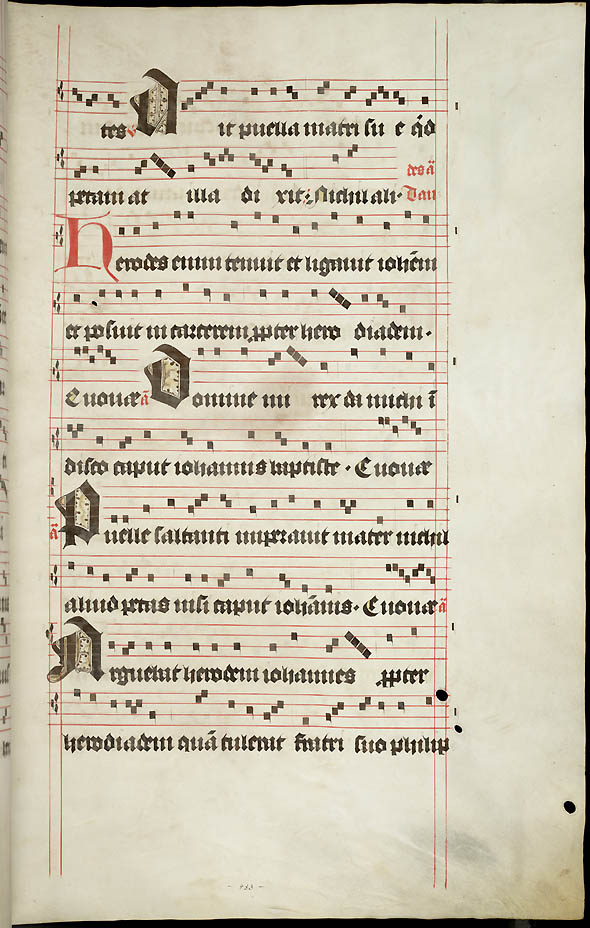 tes Ait puella matri sue qd
petam at illa dixit Nichil ali
des a Lau
Herodes enim tenuit et ligauit iohem
et posuit in carcerem ppter herodiadem.
Euouae a Domine mi rex da michi i
disco caput iohannis baptiste. Euouae
a Puelle saltanti imperauit mater nichil
aliud petas nisi caput iohanis. Euouae a
Arguebat herodem iohannes ppter
herodiadem qua tulerat fratri suo philip